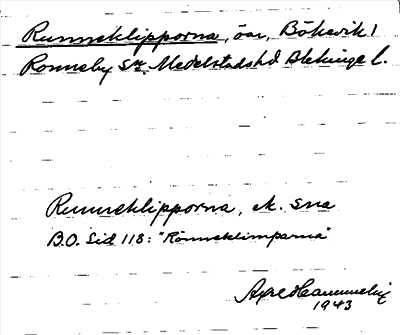 Runneklipporna, öar, Bökevik 1
Ronneby Sn. Medelstads hd Blekinge l.
Runneklipporna, ek. sna
B.O. Sid 118: "Rönneklimparna"
Axel
1943